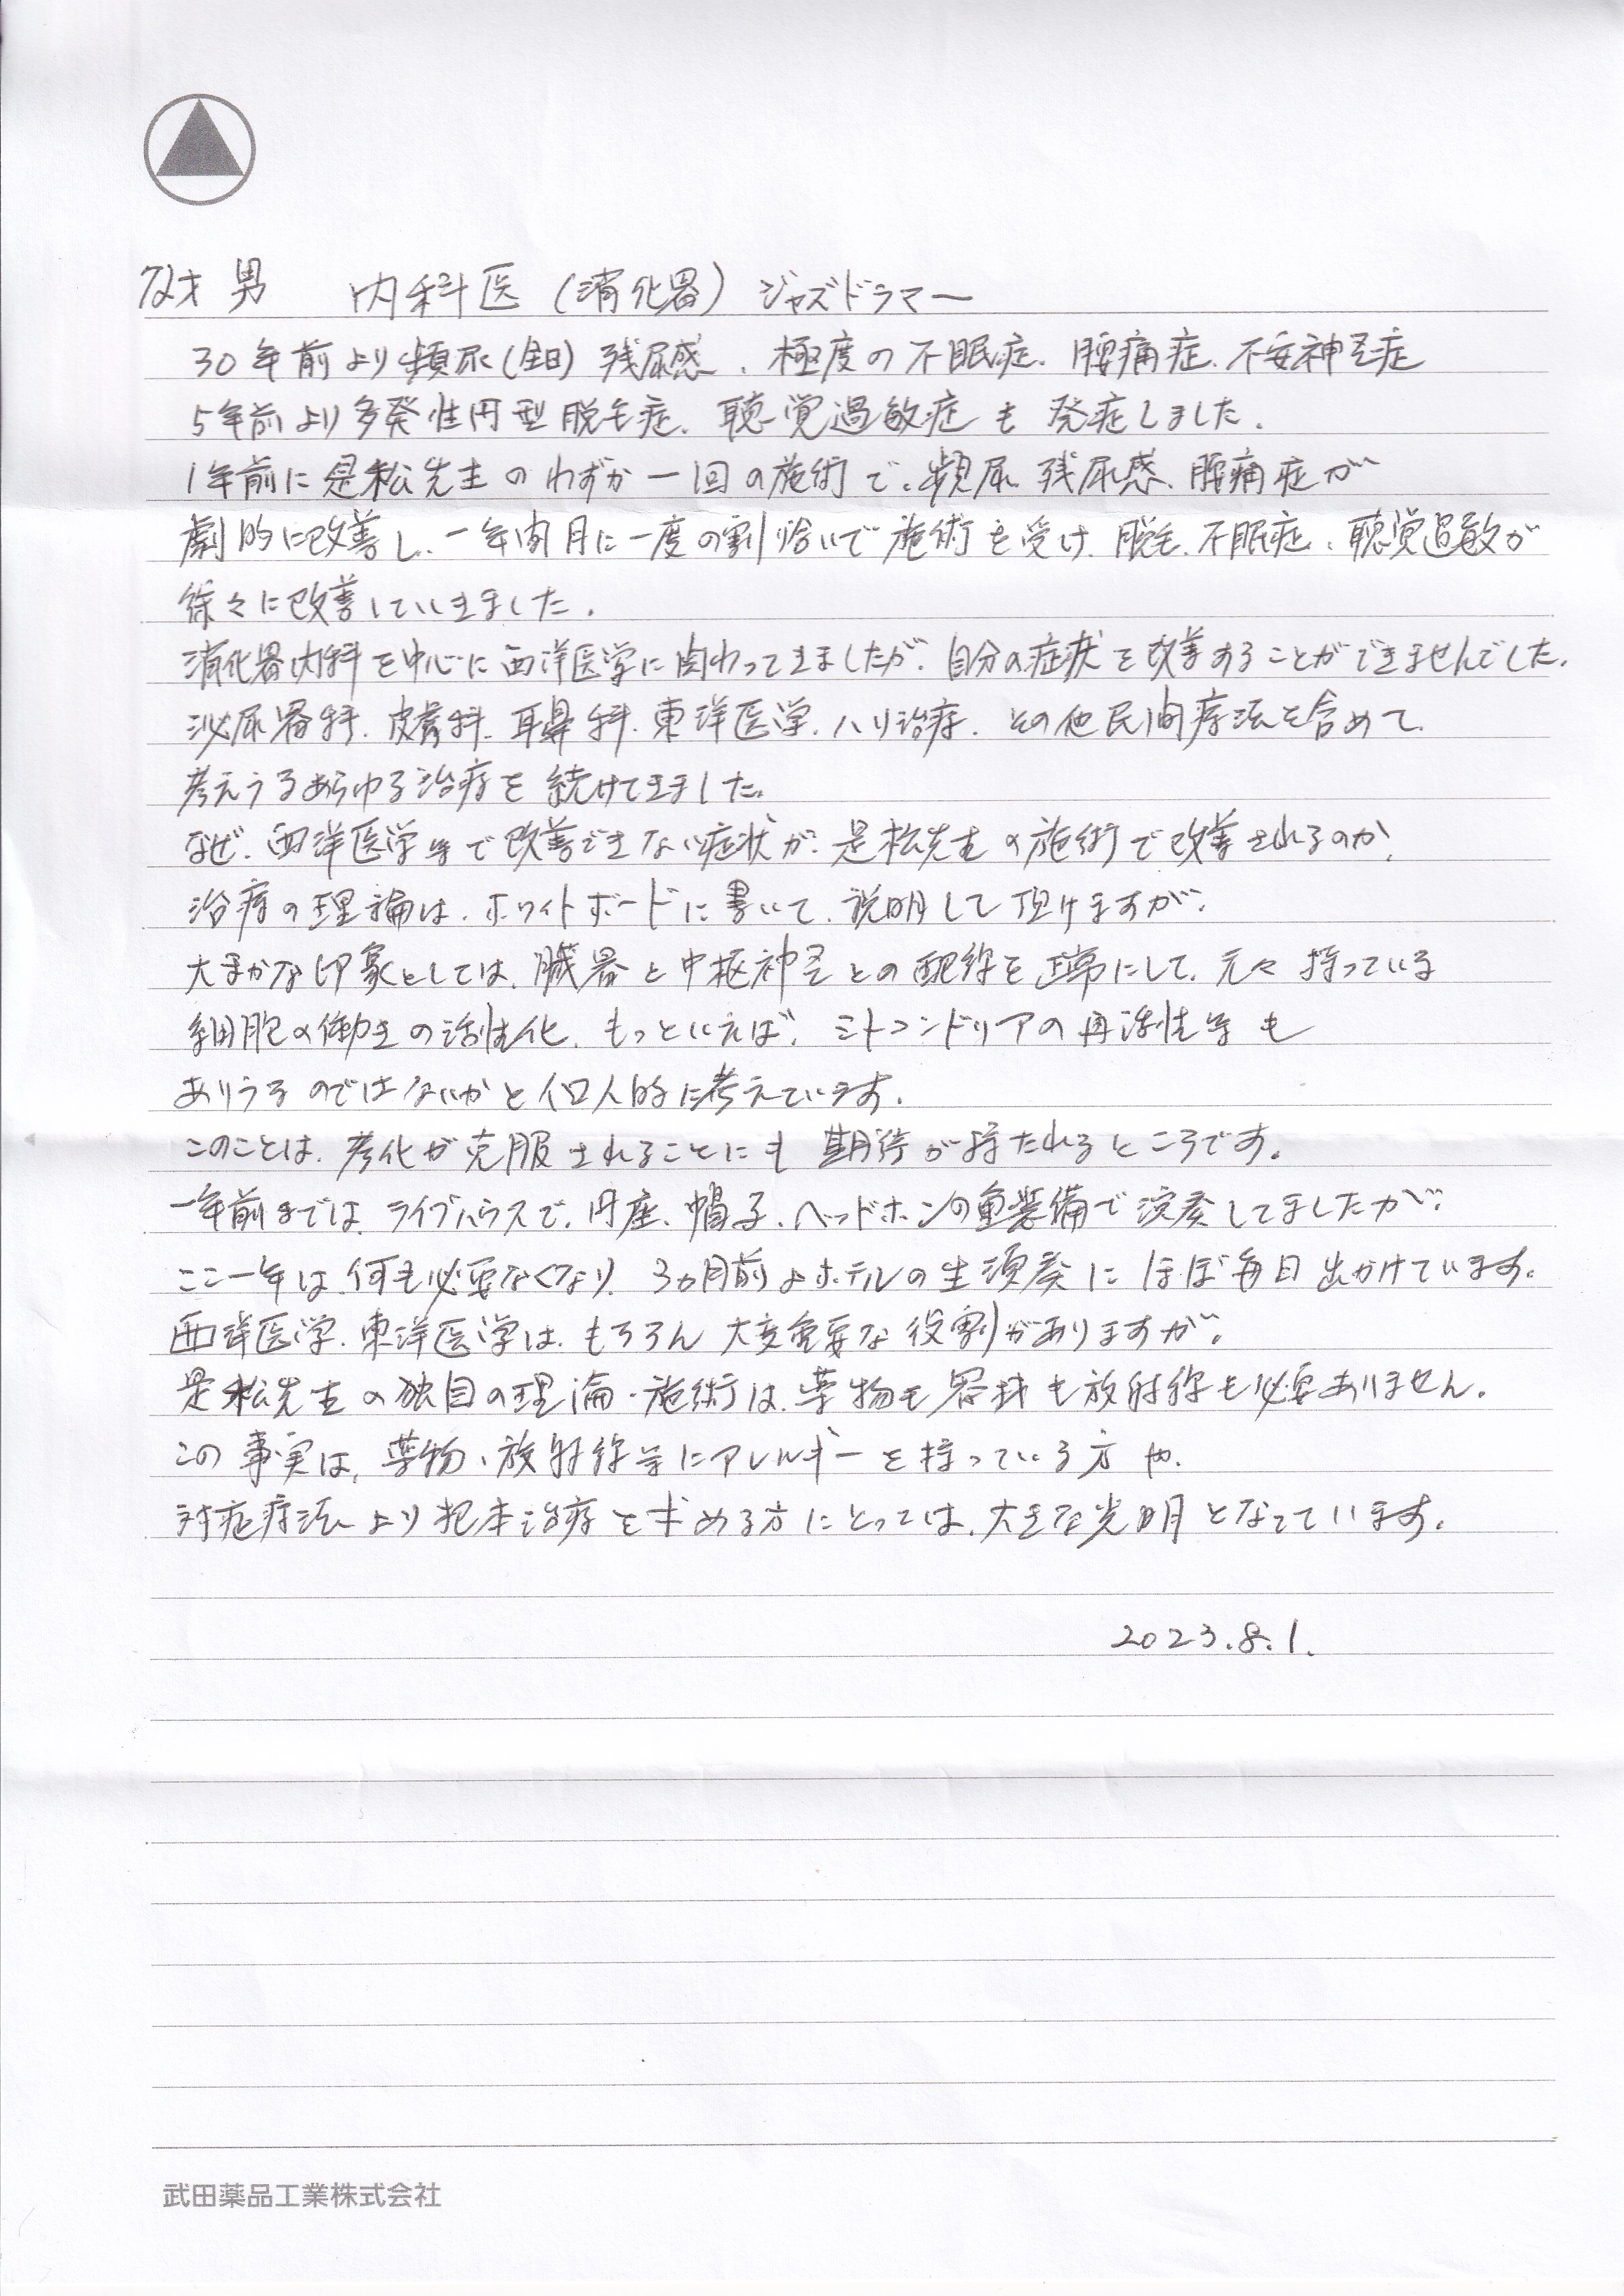 72才 男 内科医（消化器）ジャズドラマー
30年前より頻尿（昼）残尿感、極度の不眠症、腰痛症、不安神経症
5年前より多発性円型脱毛症、聴覚過敏症も発症しました。
1年前に是松先生のわずか一回の施術で、頻尿、残尿感、腰痛症が
劇的に改善し、一年間月に一度の割り合いで施術を受け、脱毛、不眠症、聴覚過敏が
徐々に改善していきました。
消化器内科を中心に西洋医学に関わってきましたが、自分の症状を改善することができませんでした。
泌尿器科、皮膚科、耳鼻科、東洋医学、ハリ治療、その他民間療法を含めて、
考えうるあらゆる治療を続けてきました。
なぜ、西洋医学等で改善できない症状が、是松先生の施術で改善されるのか、
治療の理論は、ホワイトボードに書いて、説明して頂けますが、
大まかな印象としては、臓器と中枢神経との配線を正常にして、元々持っている
細胞の働きの活性化、もっといえば、ミトコンドリアの再活性等も
ありうるのではないかと個人的に考えています。
このことは、老化が克服されることにも期待が持たれるところです。
一年前までは、ライブハウスで、円座、帽子、ヘッドホンの重装備で演奏してましたが、
ここ一年は、何も必要なくなり、3ヵ月前よりホテルの生演奏にほぼ毎日出かけています。
西洋医学、東洋医学は、もちろん大変重要な役割がありますが、
是松先生の独自の理論・施術は、薬物も器械も放射線も必要ありません。
この事実は、薬物、放射線等にアレルギーを持っている方や、
対症療法より根本治療を求める方にとっては、大きな光明となっています。
2023.8.1.
武田薬品工業株式会社